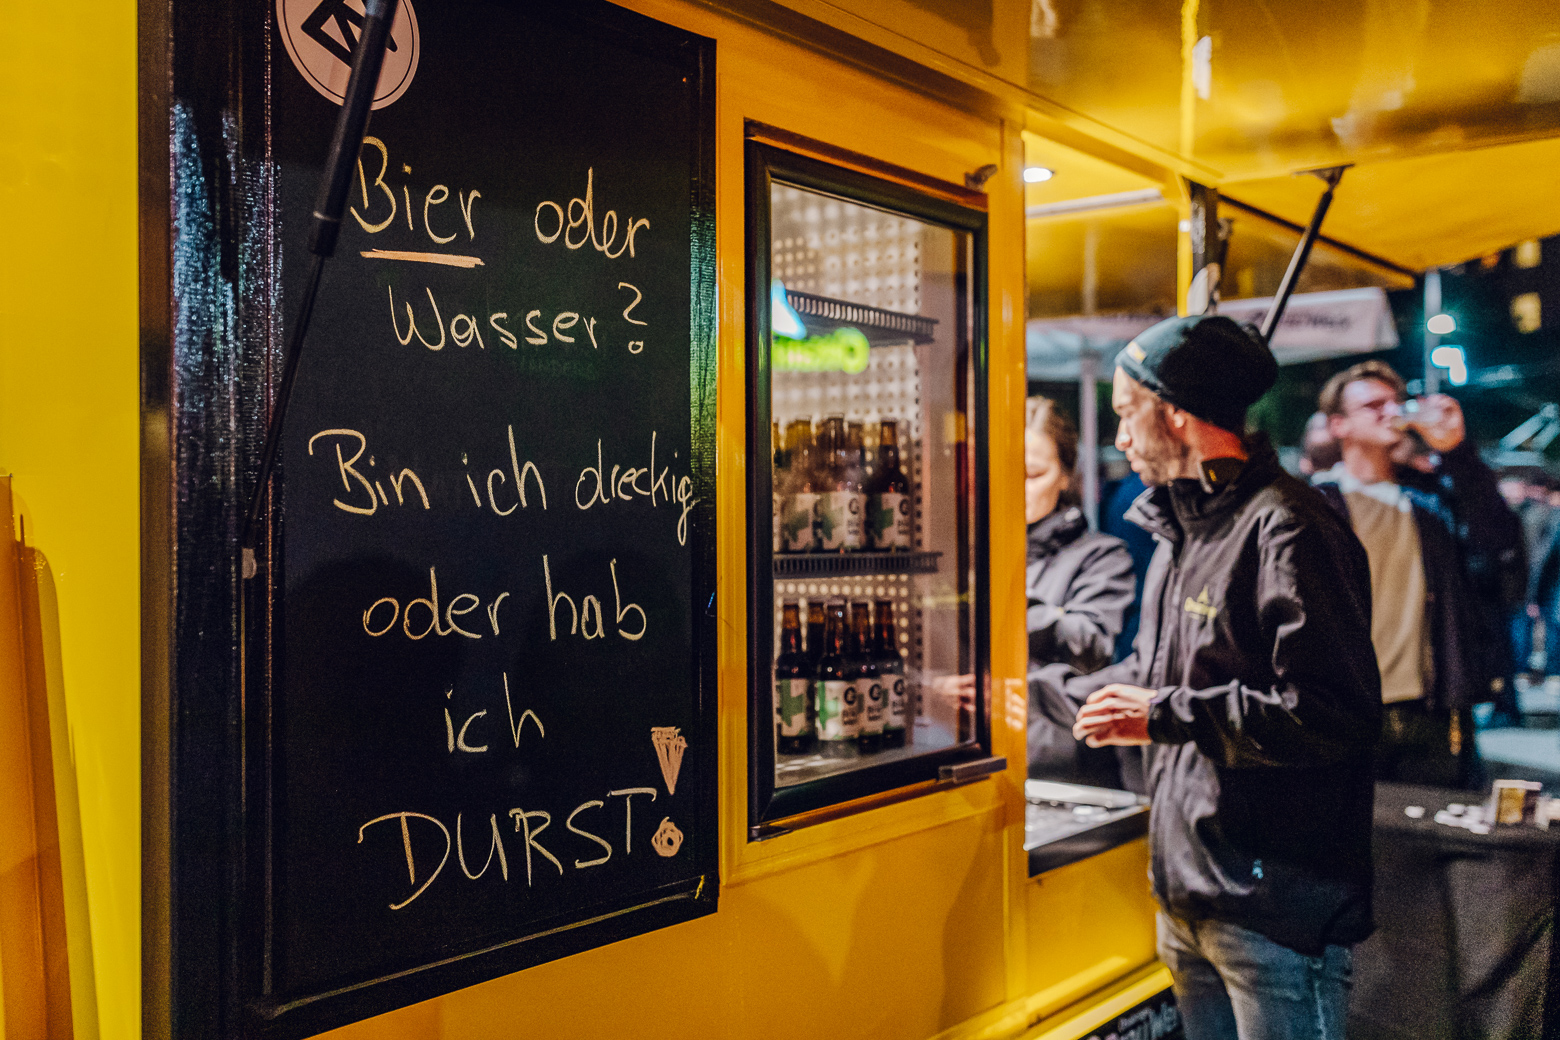 Bier oder
Wasser?
Bin ich dreckig
oder hab
ich
DURST!